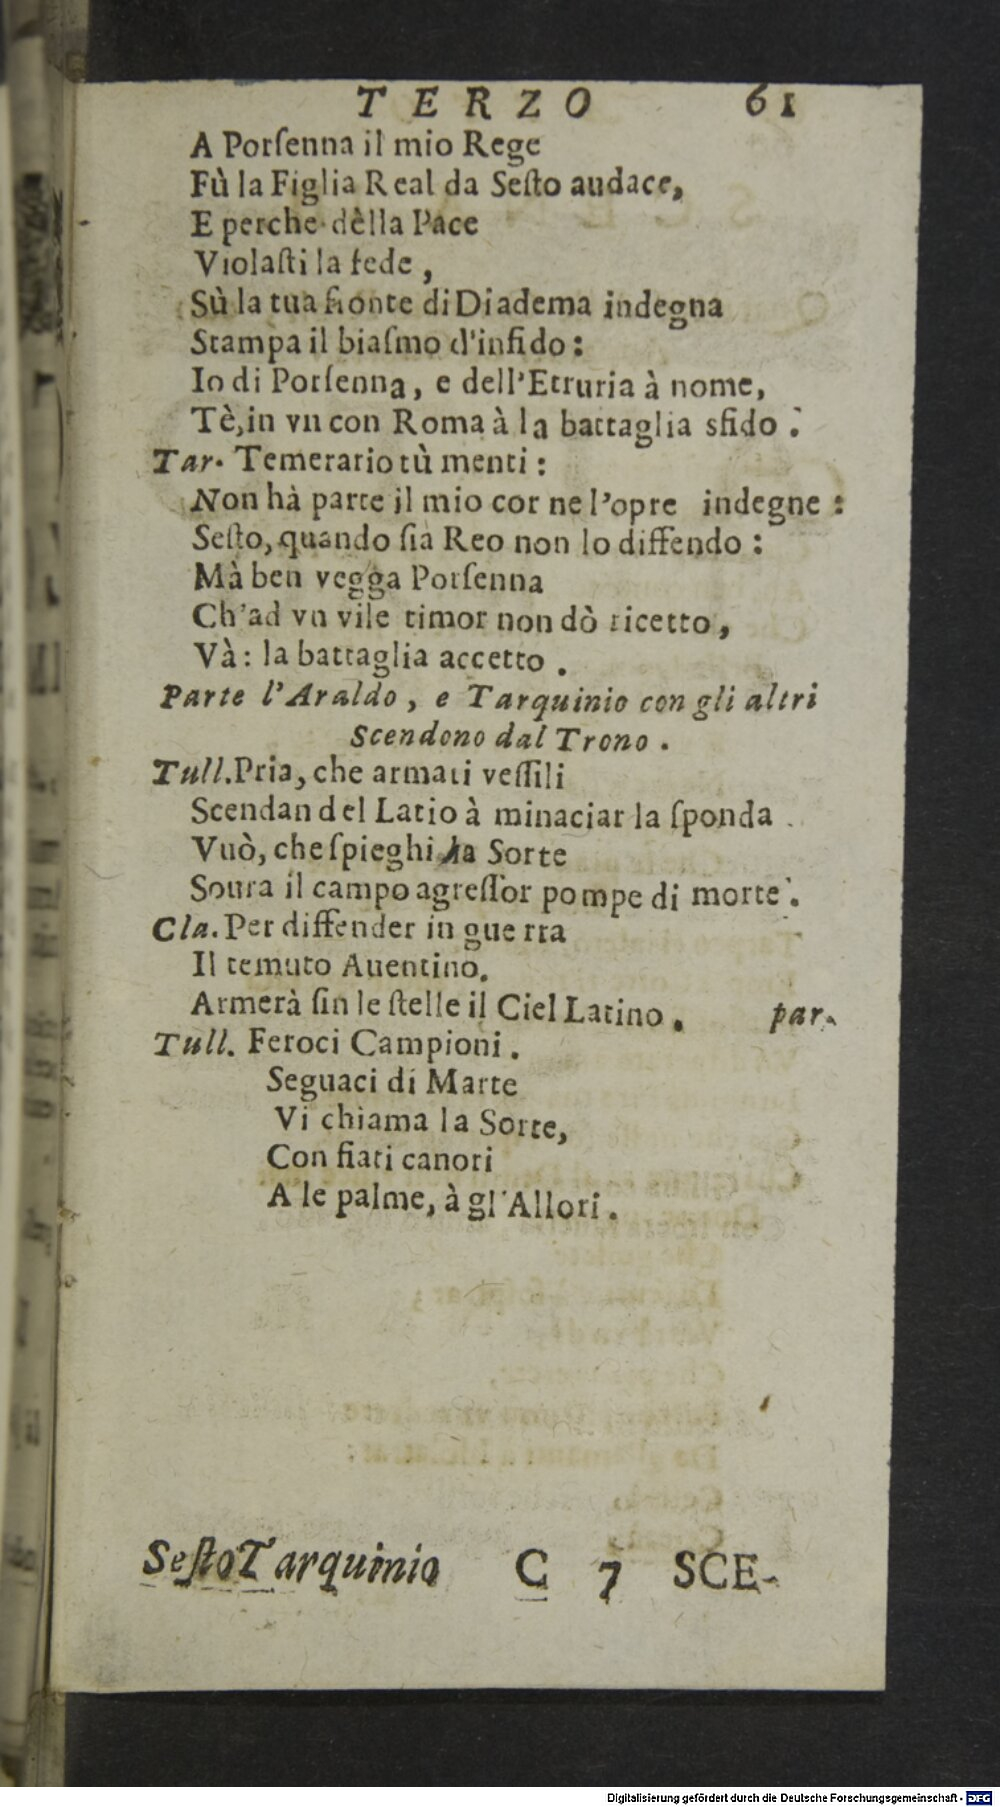 TERZO 61
A Porſenna il mio Rege
Fù la Figlia Real da Seſto audace,
E perche dèlla Pace
Violaſti la fede,
Sù la tua fronte di Diadema indegna
Stampa il biaſmo d'infido:
Io di Porſenna, e dell'Etruria à nome,
Tè, in vn con Roma à la battaglia sfido.
Tar. Temerario tù menti:
Non hà parte il mio cor ne l'opre indegne:
Seſto, quando ſia Reo non lo diffendo:
Mà ben vegga Porſenna
Ch'ad vn vile timor non dò ricetto,
Và: la battaglia accetto.
Parte l'Araldo, e Tarquinio con gli altri
Scendono dal Trono.
Tull. Pria, che armati veſſili
Scendan del Latio à minaciar la ſponda
Vuò, che ſpieghi la Sorte
Soura il campo agreſſor pompe di morte.
Cla. Per diffender in guerra
Il temuto Auentino.
Armerà ſin le ſtelle il Ciel Latino. par.
Tull. Feroci Campioni.
Seguaci di Marte
Vi chiama la Sorte,
Con fiati canori
A le palme, à gl'Allori.
Seſto Tarquinio C 7 SCE-
Digitalisierung gefördert durch die Deutsche Forschungsgemeinschaft - DFG